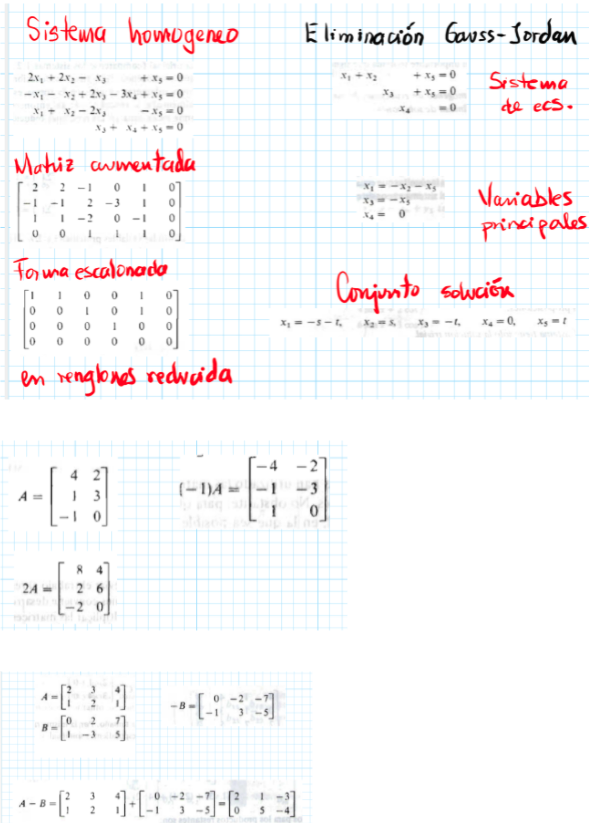 Sistema homogeneo
Eliminación Gauss-Jordan
2x₁ + 2x₂ − x₃ + x₅ = 0
−x₁ − x₂ + 2x₃ − 3x₄ + x₅ = 0
x₁ + x₂ − 2x₃ − x₅ = 0
x₃ + x₄ + x₅ = 0
x₁ + x₂ + x₅ = 0
x₃ + x₅ = 0
x₄ = 0
Sistema
de ecs.
Matriz aumentada
2 2 −1 0 1 0
−1 −1 2 −3 1 0
1 1 −2 0 −1 0
0 0 1 1 1 0
x₁ = −x₂ − x₅
x₃ = −x₅
x₄ = 0
Variables
principales
Forma escalonada
1 1 0 0 1 0
0 0 1 0 1 0
0 0 0 1 0 0
0 0 0 0 0 0
en renglones reducida
Conjunto solución
x₁ = −s − t, x₂ = s, x₃ = −t, x₄ = 0, x₅ = t
A =
4 2
1 3
−1 0
(−1)A =
−4 −2
−1 −3
1 0
2A =
8 4
2 6
−2 0
A = [2 3 4
1 2 1]
B = [0 2 7
1 −3 5]
−B = [0 −2 −7
−1 3 −5]
A − B = [2 3 4
1 2 1] + [0 −2 −7
−1 3 −5] = [2 1 −3
0 5 −4]